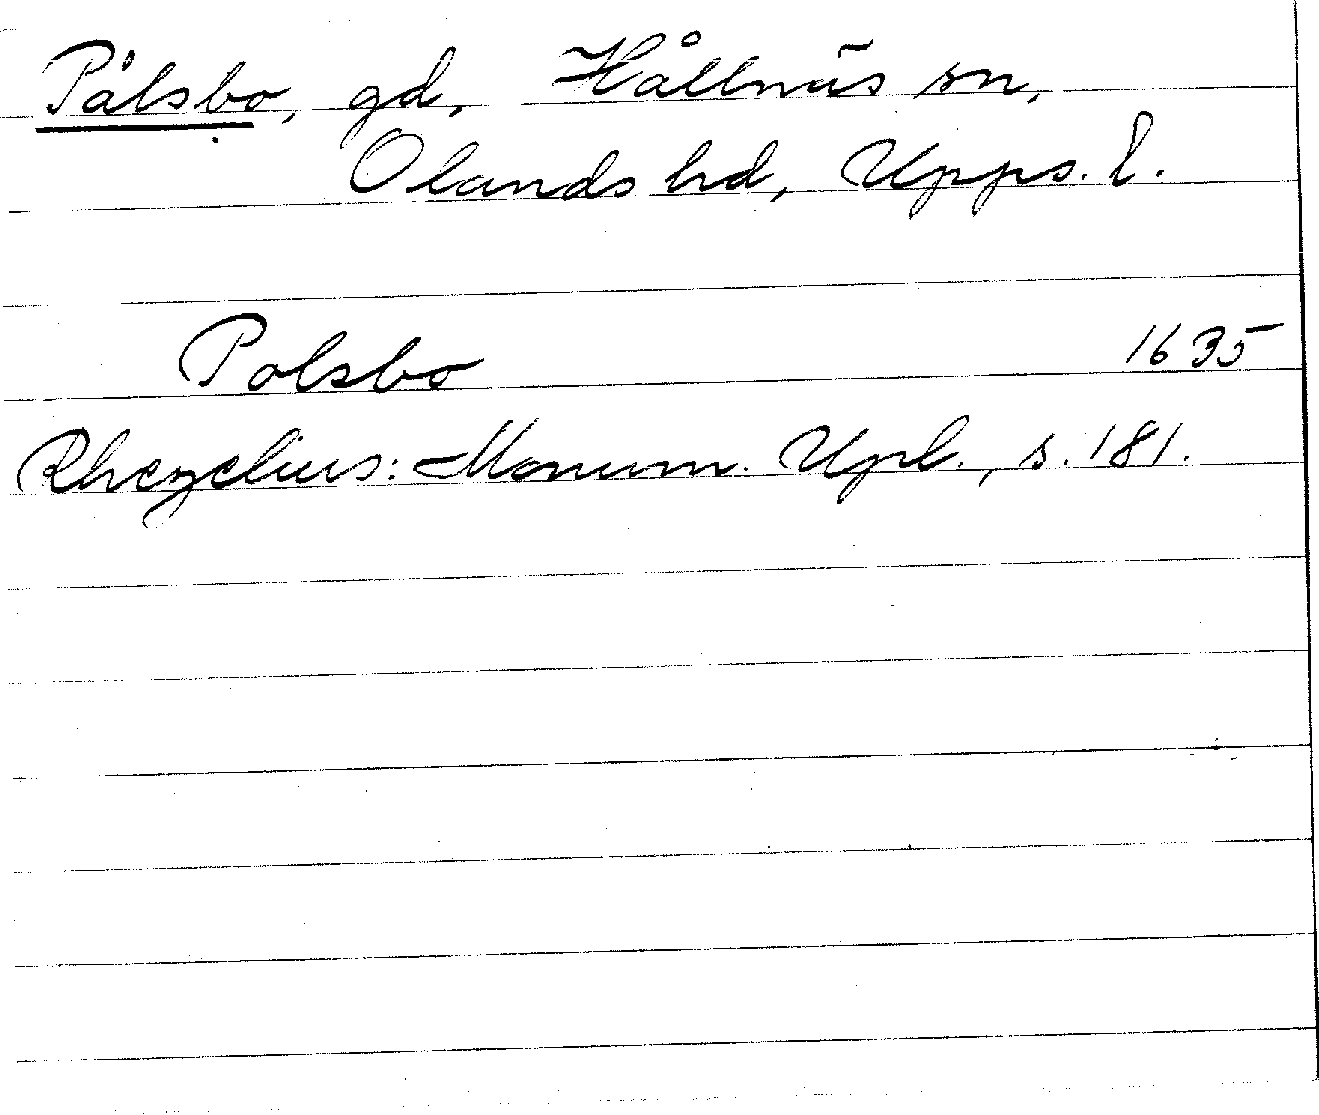 Pålsbo, gd, Hållnäs sn,
Olands hd, Upps. l.
Polsbo 1635
Rhezelius: Monum. Upl., s. 181.